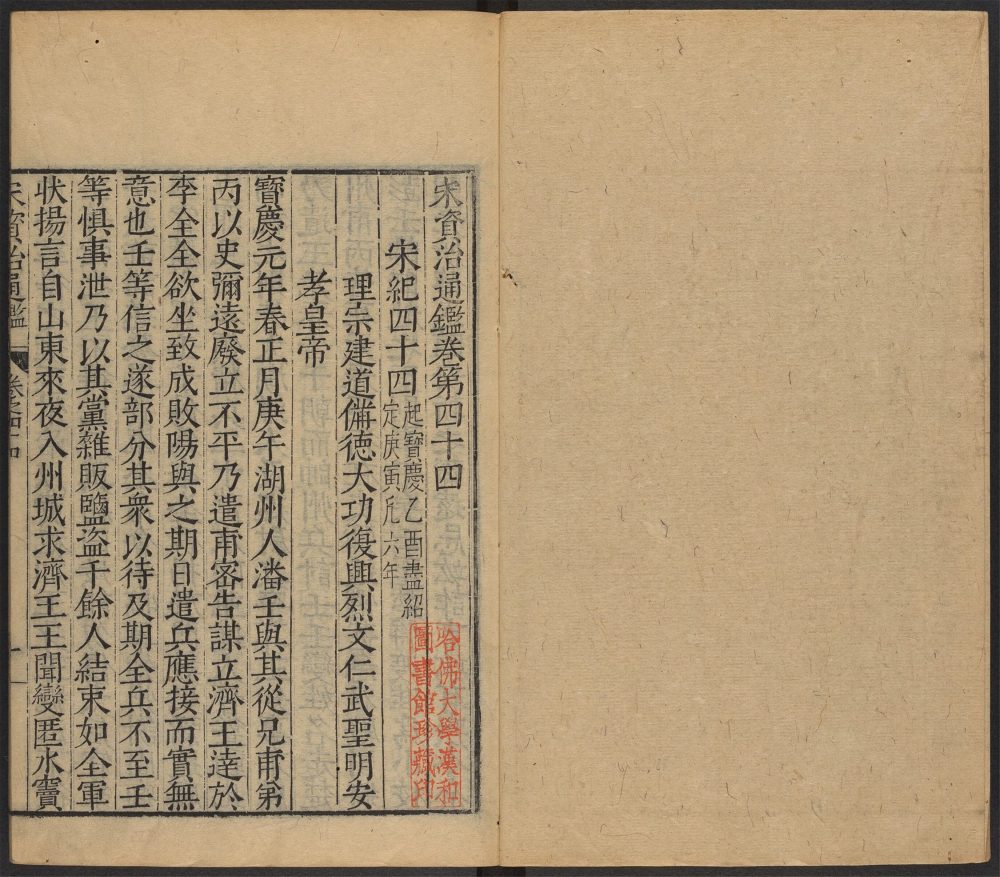 宋資治通鑑卷第四十四
宋紀四十四起寶慶乙酉盡紹
定庚寅凡六年
理宗建道備德大功復興烈文仁武聖明安
孝皇帝
寶慶元年春正月庚午湖州人潘壬與其從兄甫弟
丙以史彌遠廢立不平乃遣甫密告謀立濟王達於
李全全欲坐致成敗陽與之期日遣兵應接而實無
意也壬等信之遂部分其衆以待及期全兵不至壬
等懼事泄乃以其黨雜販鹽盗千餘人結束如全軍
状揚言自山東來夜入州城求濟王王聞變匿水竇
宋資治通鑑
卷之四十四
一
哈佛大學漢和
圖書館珍藏印